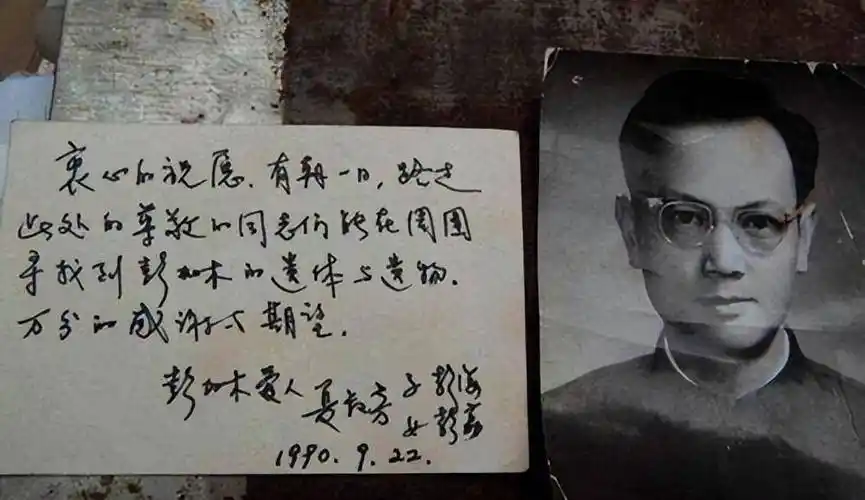 衷心的祝愿.有朝一日,路过
此处的尊敬的同志们能在周围
寻找到彭加木的遗体与遗物.
万分的感谢与期望.
彭加木爱人夏叔芳 子 彭海
女 彭荔
1990.9.22.